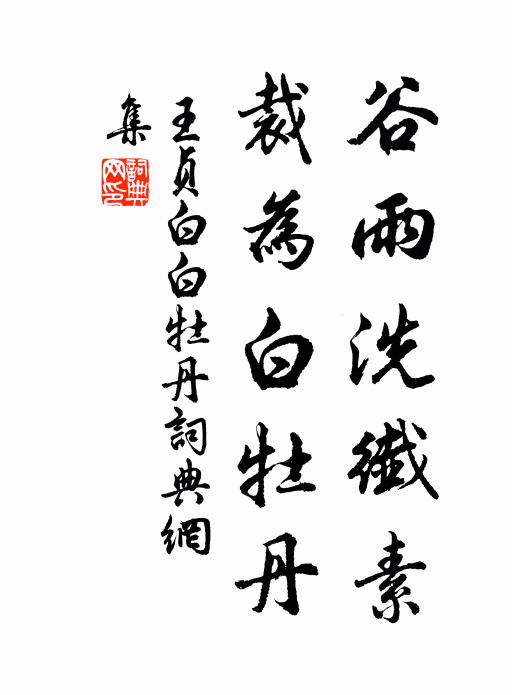 谷雨洗纖素
裁為白牡丹
王貞白白牡丹詞典網
集
詞典
網印